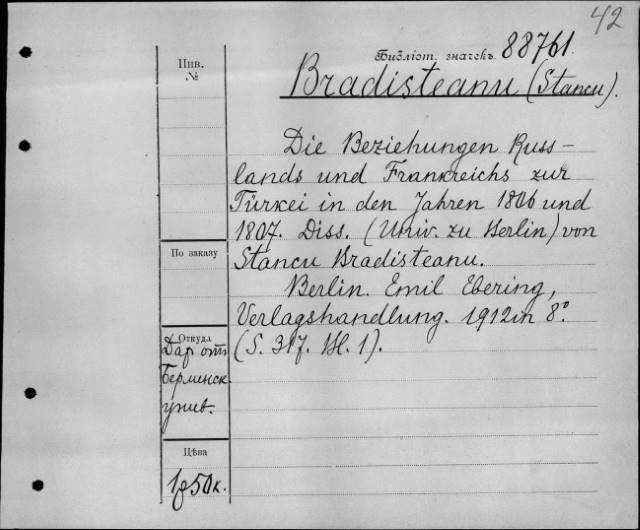 42
Библіот. значекъ. 88761.
Инв.
№
Bradisteanu (Stancu).
Die Beziehungen Russ-
lands und Frankreichs zur
Türkei in den Jahren 1806 und
1807. Diss. (Univ. zu Berlin) von
Stancu Bradisteanu.
Berlin. Emil Ebering,
Verlagshandlung. 1912 in 8º.
(S. 317. Bl. 1).
По заказу
Откуда
Дар от
Берлинск.
унив.
Цѣва
1р50к.